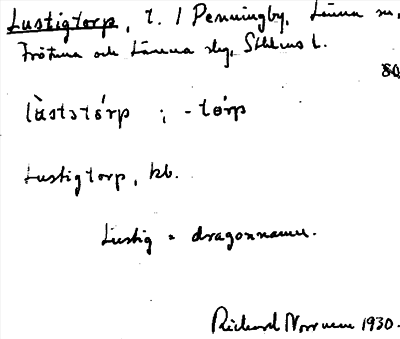 Lustigtorp, t. / Penningby, Länna sn,
Frötuna och Länna skg, Sthlms l.
lùstɔtórp ; -tórp
Lustigtorp, kb.
Lustig = dragonnamn.
Richard Norrman 1930.